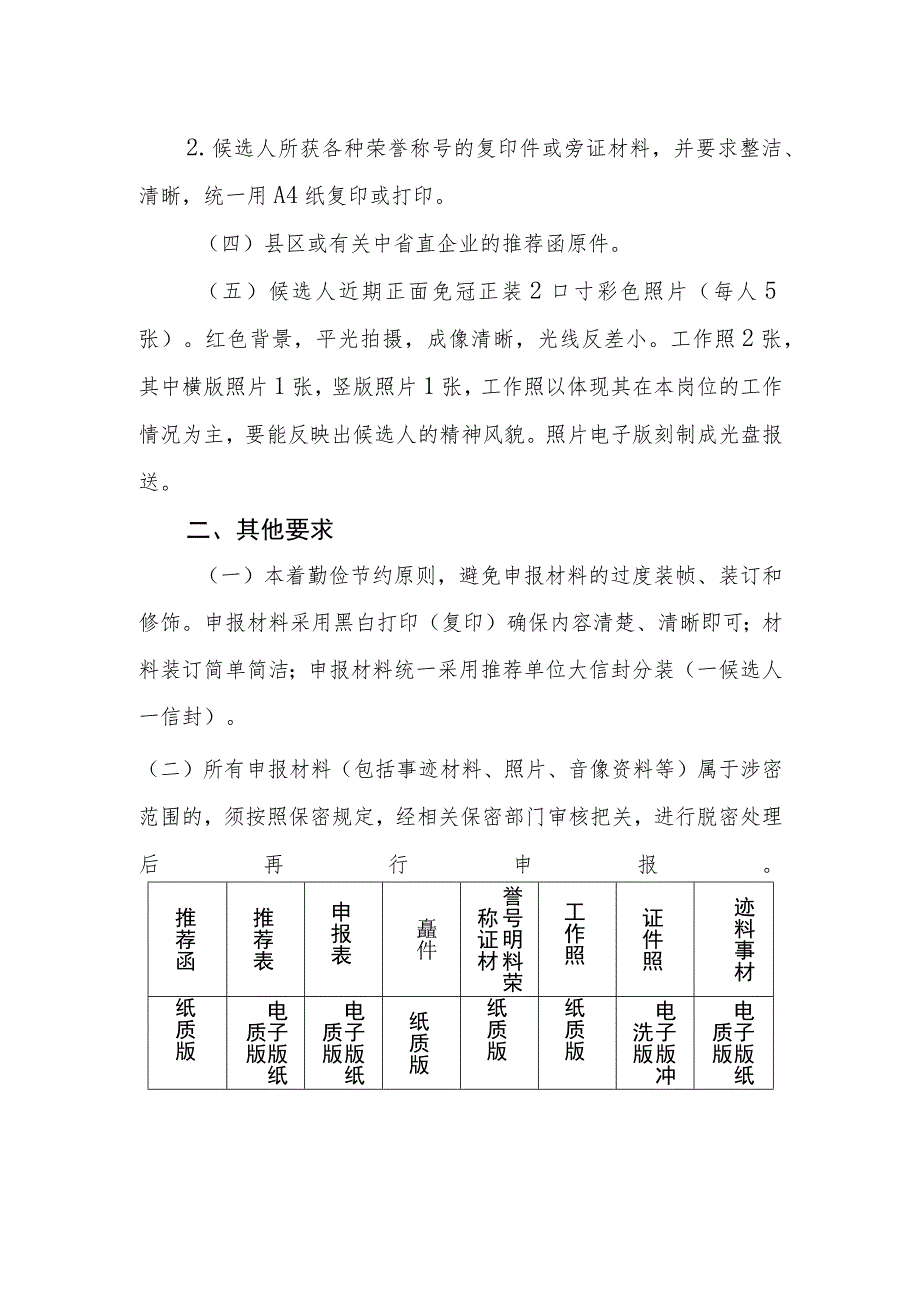 2.候选人所获各种荣誉称号的复印件或旁证材料，并要求整洁、
清晰，统一用A4纸复印或打印。
（四）县区或有关中省直企业的推荐函原件。
（五）候选人近期正面免冠正装2口寸彩色照片（每人5
张）。红色背景，平光拍摄，成像清晰，光线反差小。工作照2张，
其中横版照片1张，竖版照片1张，工作照以体现其在本岗位的工作
情况为主，要能反映出候选人的精神风貌。照片电子版刻制成光盘报
送。
二、其他要求
（一）本着勤俭节约原则，避免申报材料的过度装帧、装订和
修饰。申报材料采用黑白打印（复印）确保内容清楚、清晰即可；材
料装订简单简洁；申报材料统一采用推荐单位大信封分装（一候选人
一信封）。
（二）所有申报材料（包括事迹材料、照片、音像资料等）属于涉密
范围的，须按照保密规定，经相关保密部门审核把关，进行脱密处理
后再行申报。
推荐函
推荐表
申报表
矗件
誉号明料荣
称证材
工作照
证件照
迹料事材
纸质版
电子版纸
质版
电子版纸
质版
纸质版
纸质版
纸质版
电子版冲
洗版
电子版纸
质版